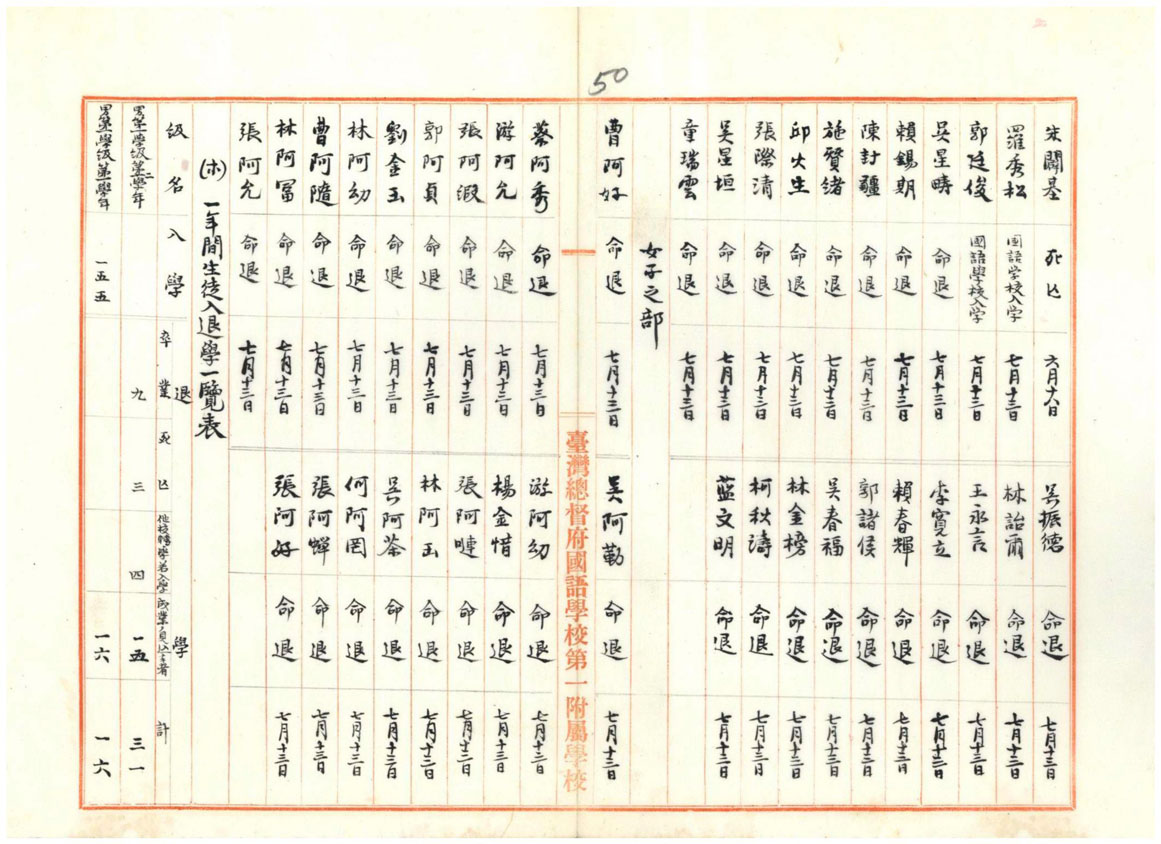 50
朱闢基 死亡 六月十八日 吳振德 命退 七月十三日
羅秀松 国語学校入学 七月十三日 林詒爾 命退 七月十三日
郭廷俊 國語學校入学 七月十三日 王永言 命退 七月十三日
吳星疇 命退 七月十三日 李寬立 命退 七月十三日
賴錫期 命退 七月十三日 賴春輝 命退 七月十三日
陳封疆 命退 七月十三日 郭諸侯 命退 七月十三日
施賢緒 命退 七月十三日 吳春福 命退 七月十三日
邱火生 命退 七月十三日 林金榜 命退 七月十三日
張際清 命退 七月十三日 柯秋濤 命退 七月十三日
吳星垣 命退 七月十三日 藍文明 命退 七月十三日
童瑞雲 命退 七月十三日
女子之部
曹阿好 命退 七月十三日 吳阿勤 命退 七月十三日
臺灣總督府國語學校第一附屬學校
蔡阿秀 命退 七月十三日 游阿幼 命退 七月十三日
游阿允 命退 七月十三日 楊金惜 命退 七月十三日
張阿淑 命退 七月十三日 張阿嗹 命退 七月十三日
郭阿貞 命退 七月十三日 林阿玉 命退 七月十三日
劉金玉 命退 七月十三日 吳阿茶 命退 七月十三日
林阿幼 命退 七月十三日 何阿罔 命退 七月十三日
曹阿隨 命退 七月十三日 張阿蟬 命退 七月十三日
林阿冨 命退 七月十三日 張阿好 命退 七月十三日
張阿允 命退 七月十三日
(ホ) 一年間生徒入退學一覽表
級名 入學 退學
卒業 死亡 他校轉學若入學 成業ノ見込ナキ者 計
男第一學級第二學年 九 三 四 一五 三一
男第二學級第一學年 一五五 一六 一六